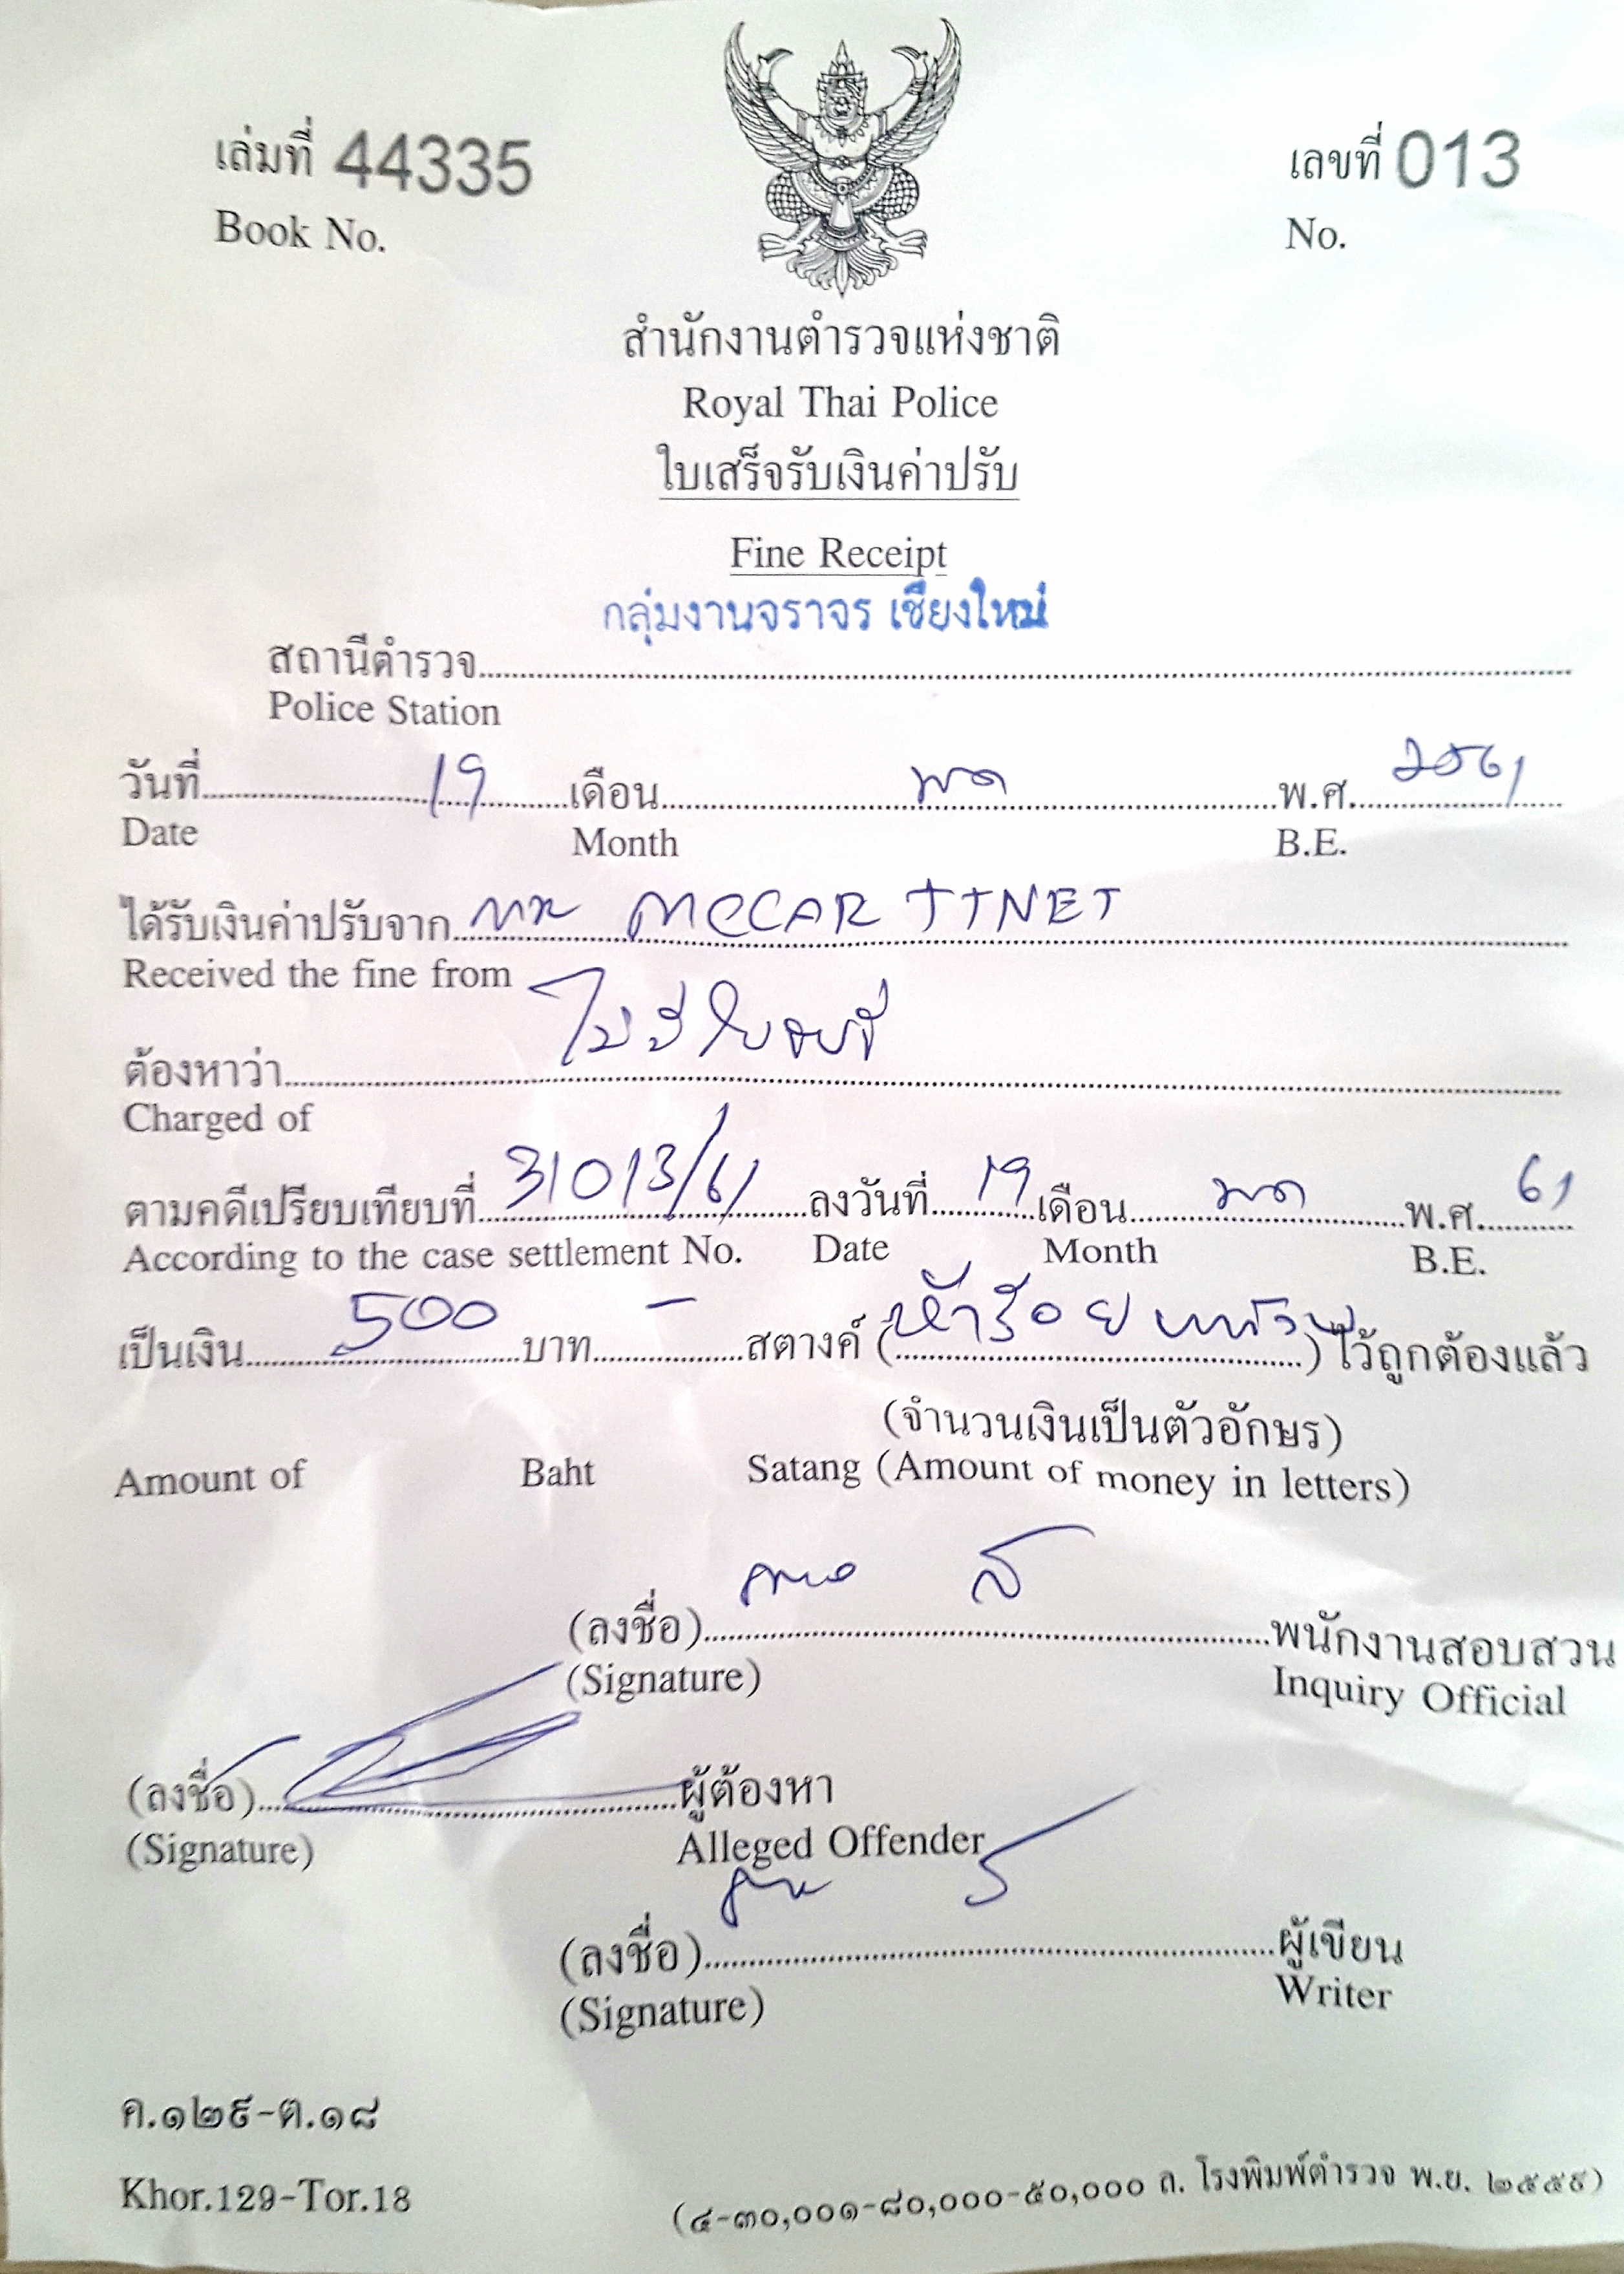 เล่มที่ 44335
Book No.
เลขที่ 013
No.
สำนักงานตำรวจแห่งชาติ
Royal Thai Police
ใบเสร็จรับเงินค่าปรับ
Fine Receipt
กลุ่มงานจราจร เชียงใหม่
สถานีตำรวจ
Police Station
วันที่ 19 เดือน พค พ.ศ. 2561
Date Month B.E.
ได้รับเงินค่าปรับจาก MR MCCAR TTNET
Received the fine from
ต้องหาว่า ไม่มีใบขับขี่
Charged of
ตามคดีเปรียบเทียบที่ 31013/61 ลงวันที่ 19 เดือน พค พ.ศ. 61
According to the case settlement No. Date Month B.E.
เป็นเงิน 500 บาท - สตางค์ (ห้าร้อยบาทถ้วน) ไว้ถูกต้องแล้ว
(จำนวนเงินเป็นตัวอักษร)
Amount of Baht Satang (Amount of money in letters)
(ลงชื่อ) พนักงานสอบสวน
(Signature) Inquiry Official
(ลงชื่อ) ผู้ต้องหา
(Signature) Alleged Offender
(ลงชื่อ) ผู้เขียน
(Signature) Writer
ค.๑๒๙-ต.๑๘
Khor.129-Tor.18
(๔-๓๐,๐๐๑-๘๐,๐๐๐-๕๐,๐๐๐ ล. โรงพิมพ์ตำรวจ พ.ย. ๒๕๕๙)